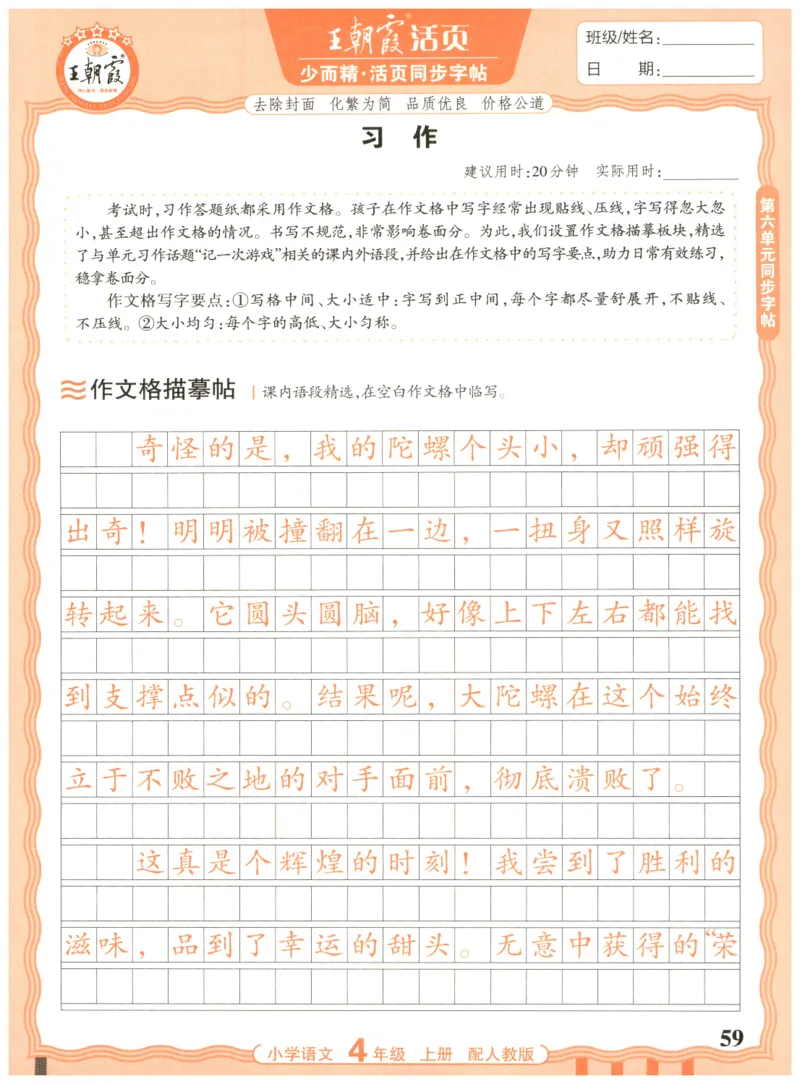 王朝霞
王朝霞®活页
少而精·活页同步字帖
班级/姓名:
日 期:
去除封面 化繁为简 品质优良 价格公道
习 作
建议用时:20分钟 实际用时:
考试时,习作答题纸都采用作文格。孩子在作文格中写字经常出现贴线、压线,字写得忽大忽
小,甚至超出作文格的情况。书写不规范,非常影响卷面分。为此,我们设置作文格描摹板块,精选
了与单元习作话题“记一次游戏”相关的课内外语段,并给出在作文格中的写字要点,助力日常有效练习,
稳拿卷面分。
作文格写字要点:①写格中间、大小适中:字写到正中间,每个字都尽量舒展开,不贴线、
不压线。②大小均匀:每个字的高低、大小匀称。
第六单元同步字帖
作文格描摹帖 课内语段精选,在空白作文格中临写。
奇怪的是,我的陀螺个头小,却顽强得
出奇!明明被撞翻在一边,一扭身又照样旋
转起来。它圆头圆脑,好像上下左右都能找
到支撑点似的。结果呢,大陀螺在这个始终
立于不败之地的对手面前,彻底溃败了。
这真是个辉煌的时刻!我尝到了胜利的
滋味,品到了幸运的甜头。无意中获得的“荣
59
小学语文 4年级 上册 配人教版